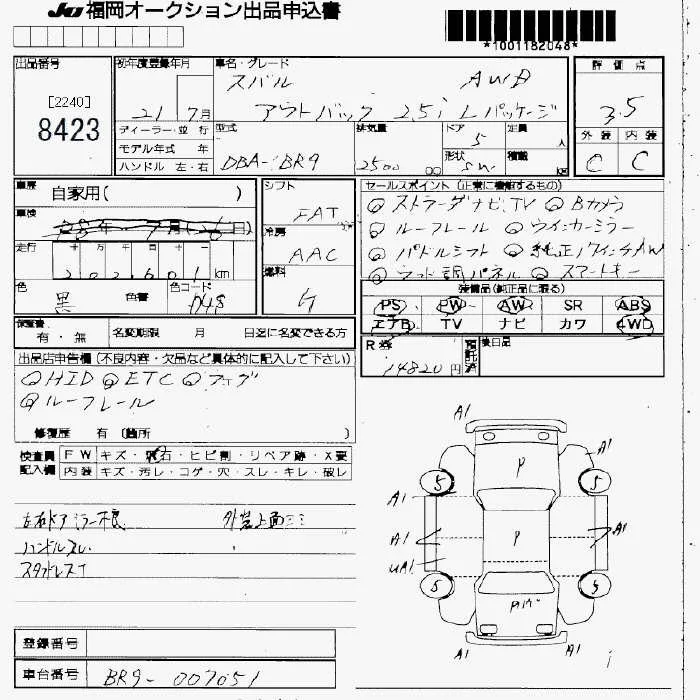 JU 福岡オークション出品申込書
*1001182048*
出品番号
[2240]
8423
初年度登録年月
21 7月
ディーラー・並 行
モデル年式 年
ハンドル 左・右
車名・グレード
スバル AWD
アウトバック 2.5i Lパッケージ
型式
DBA-BR9
排気量
2500 cc
ドア
5
形状
SW
定員
人
積載
kg
評価点
3.5
外装 内装
C C
車歴
自家用( )
車検
走行
十 万 千 百 十 一
202601 km
色
黒
色替
色コード
D48
シフト
FAT
冷房
AAC
燃料
ガ
セールスポイント (正常に機能するもの)
◎ストラーダナビ,TV ◎Bカメラ
◎ルーフレール ◎ウィンカーミラー
◎パドルシフト ◎純正17インチAW
◎ウッド調パネル ◎スマートキー
装備品(純正品に限る)
PS PW AW SR ABS
エアB TV ナビ カワ 4WD
保証書
有・無
名変期限 月 日迄に名変できる方
R券
14820円
預託済
後日品
出品店申告欄 (不良内容・欠品など具体的に記入して下さい)
◎HID ◎ETC ◎フォグ
◎ルーフレール
修復歴 有 (箇所 )
検査員
記入欄
FW キズ・飛石・ヒビ割・リペア跡・X要
内装 キズ・汚レ・コゲ・穴・スレ・キレ・破レ
左右ドアミラー不良 外装上面シミ
ハンドルスレ
スタッドレスT
登録番号
車台番号
BR9-007051
A1
P
A1
5 5
A1
A1 P A1
UA1
5 5
A1 A1